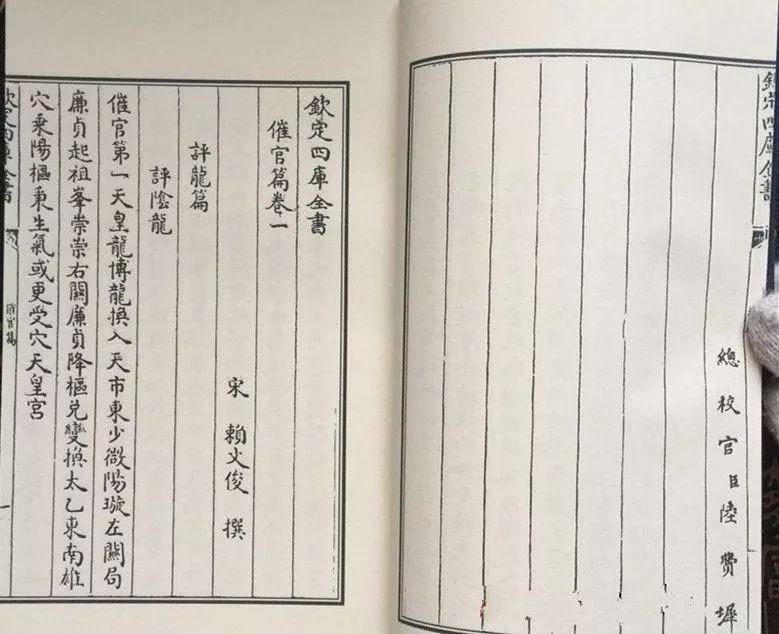 欽定四庫全書
總校官臣陸費墀
欽定四庫全書
催官篇卷一
宋 賴文俊 撰
評龍篇
評陰龍
催官第一天皇龍博龍換入天市東少微陽璇左關局
廉貞起祖峯崇崇右關廉貞降樞兌變換太乙東南雄
穴乘陽樞秉生氣或更受穴天皇宮
欽定四庫全書
催官篇
一